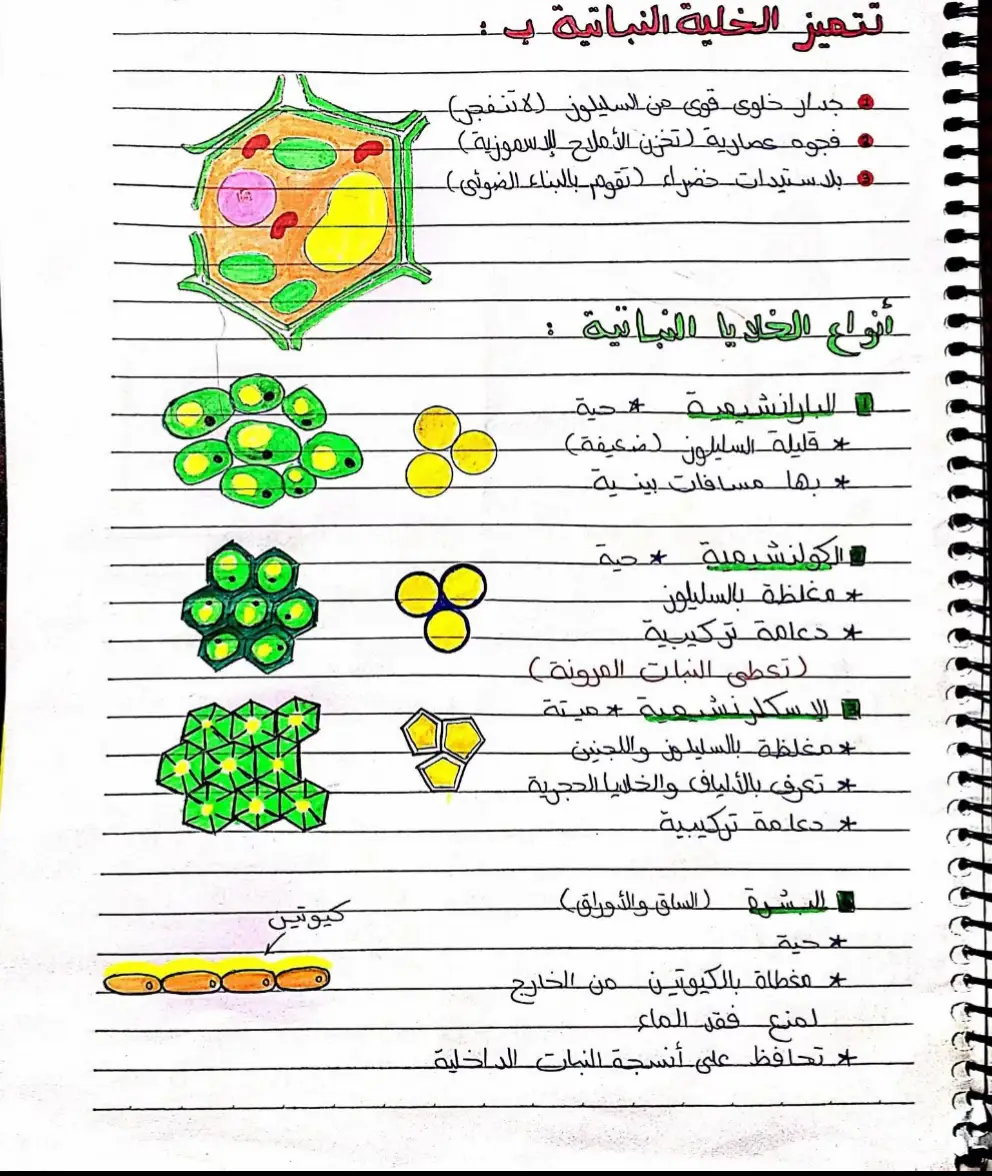 تتميز الخلية النباتية ب :
1 جدار خلوى قوى من السليلوز (لا تنفجر)
2 فجوه عصارية (تخزن الأملاح الإسموزية)
3 بلاستيدات خضراء (تقوم بالبناء الضوئى)
أنواع الخلايا النباتية :
1 البارانشيمية * حية
* قليلة السليلوز (ضعيفة)
* بها مسافات بينية
2 الكولنشيمية * حية
* مغلظة بالسليلوز
* دعامة تركيبية
(تعطى النبات المرونة)
3 الإسكلرنشيمية * ميتة
* مغلظة بالسليلوز واللجنين
* تعرف بالألياف والخلايا الحجرية
* دعامة تركيبية
البشرة (الساق والأوراق)
كيوتين
* حية
* مغطاة بالكيوتين من الخارج
لمنع فقد الماء
* تحافظ على أنسجة النبات الداخلية